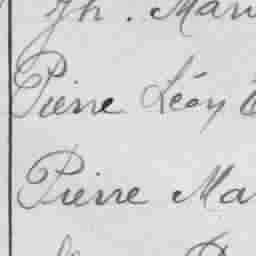 Jh. Mari
Pierre Léon
Pierre Ma